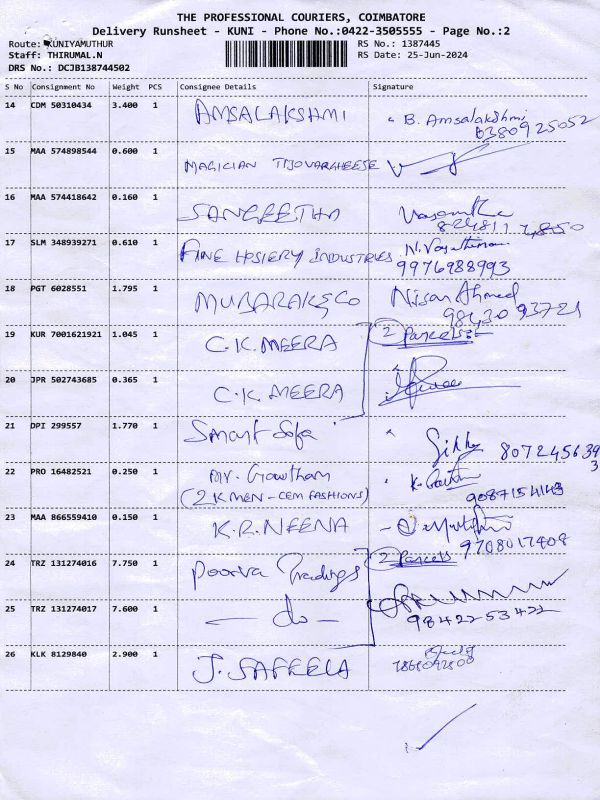 THE PROFESSIONAL COURIERS, COIMBATORE
Delivery Runsheet - KUNI - Phone No.:0422-3505555 - Page No.:2
Route: KUNIYAMUTHUR RS No.: 1387445
Staff: THIRUMAL.N RS Date: 25-Jun-2024
DRS No.: DCJB138744502
S No Consignment No Weight PCS Consignee Details Signature
14 CDM 50310434 3.400 1 AMSALAKSHMI B. Amsalakshmi
6380925052
15 MAA 574898544 0.600 1 MAGICIAN TIJOVARGHEESE
16 MAA 574418642 0.160 1 SANGEETHA
17 SLM 348939271 0.610 1 FINE HOSIERY INDUSTRIES
9976988993
18 PGT 6028551 1.795 1 MUBARAK&CO Nisar Ahmed
9843093721
19 KUR 7001621921 1.045 1 C.K.MEERA 2 Parcels
20 JPR 502743685 0.365 1 C.K.MEERA
21 DPI 299557 1.770 1 Smart Sofa
8072456393
22 PRO 16482521 0.250 1 Mr. Gowtham K. Gowtham
(2K MEN-CEM FASHIONS) 9087154143
23 MAA 866559410 0.150 1 K.R.NEENA
9708017408
24 TRZ 131274016 7.750 1 Poorva Tradings 2 Parcels
25 TRZ 131274017 7.600 1 — do — 98422-53422
26 KLK 8129840 2.900 1 J.SAFEELA